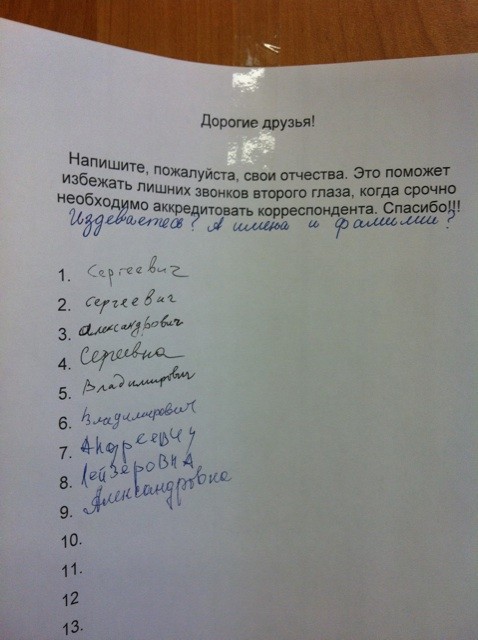 Дорогие друзья!
Напишите, пожалуйста, свои отчества. Это поможет
избежать лишних звонков второго глаза, когда срочно
необходимо аккредитовать корреспондента. Спасибо!!!
Издеваетесь? А имена и фамилии?
1. Сергеевич
2. Сергеевич
3. Александрович
4. Сергеевна
5. Владимирович
6. Владимирович
7. Андреевич
8. Лейзеровна
9. Александровна
10.
11.
12
13.